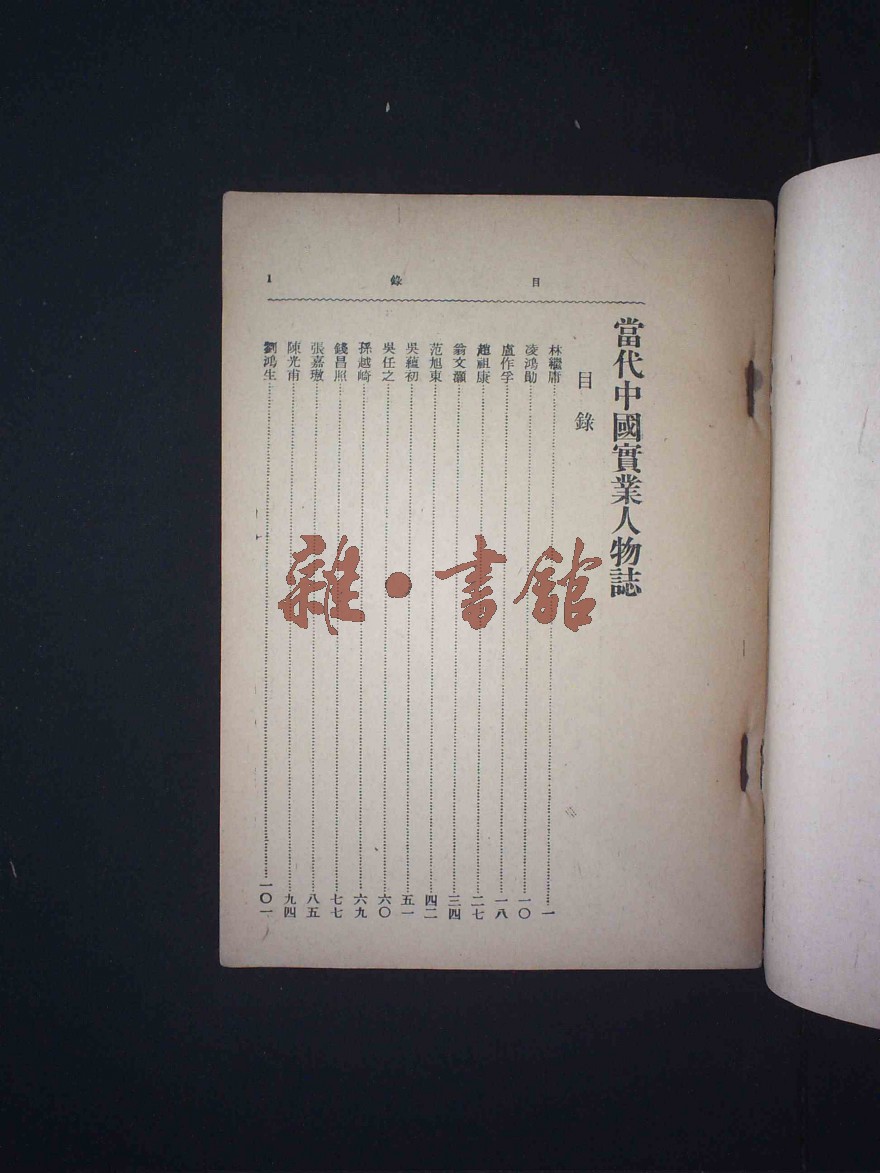 當代中國實業人物誌
目錄
目 錄 1
林繼庸 一
凌鴻勛 一〇
盧作孚 一八
趙祖康 二七
翁文灝 三四
范旭東 四二
吳蘊初 五一
吳任之 六〇
孫越崎 六九
錢昌照 七七
張嘉璈 八五
陳光甫 九四
劉鴻生 一〇一
雜·書館